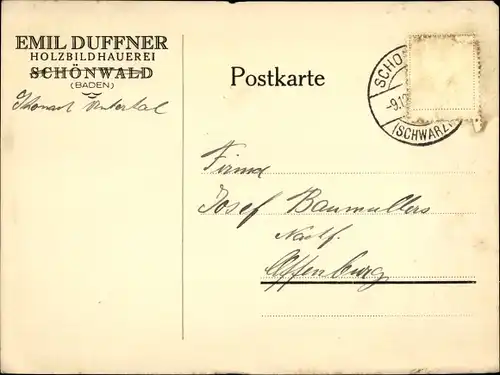 EMIL DUFFNER
HOLZBILDHAUEREI
SCHÖNWALD
(BADEN)
Postkarte
SCHO
-9.10
(SCHWARZ
Firma
Josef Baumullers
Nachf.
Offenburg